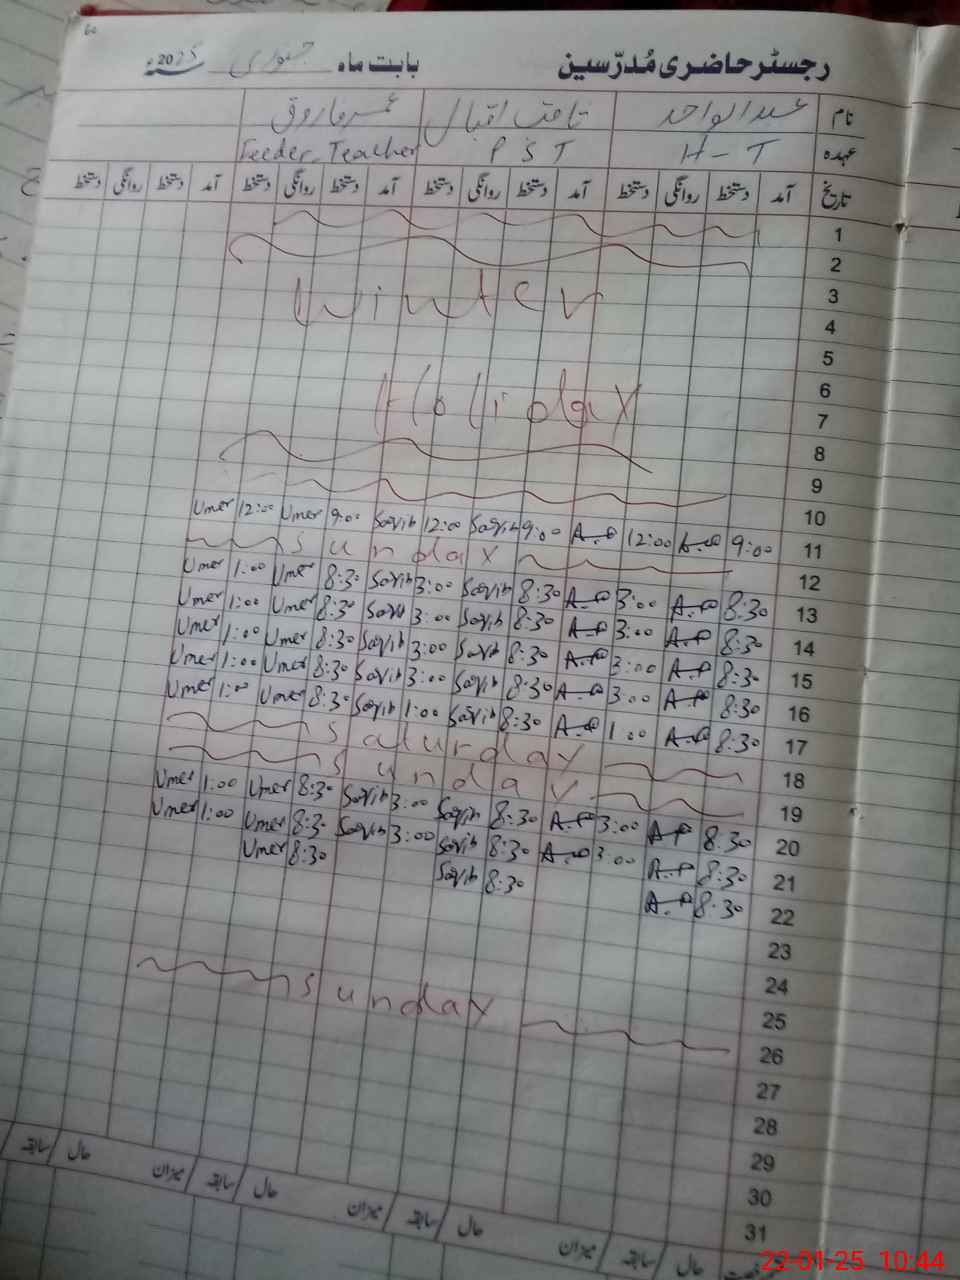 60
رجسٹر حاضری مُدرّسین بابت ماہ جنوری سنہ 2025ء
نام عبدالواحد ثاقب اقبال عمر فاروق
عہدہ H-T P S T Feeder Teacher
تاریخ آمد دستخط روانگی دستخط آمد دستخط روانگی دستخط آمد دستخط روانگی دستخط آمد دستخط روانگی دستخط
1
2
3 Winter
4
5
6 Holiday
7
8
9
10
11 9:00 A.W 12:00 A.W 9:00 Saqib 12:00 Saqib 9:00 Umer 12:00 Umer
12 Sunday
13 8:30 A.W 3:00 A.W 8:30 Saqib 3:00 Saqib 8:30 Umer 1:00 Umer
14 8:30 A.W 3:00 A.W 8:30 Saqib 3:00 Saqib 8:30 Umer 1:00 Umer
15 8:30 A.W 3:00 A.W 8:30 Saqib 3:00 Saqib 8:30 Umer 1:00 Umer
16 8:30 A.W 3:00 A.W 8:30 Saqib 3:00 Saqib 8:30 Umer 1:00 Umer
17 8:30 A.W 1:00 A.W 8:30 Saqib 1:00 Saqib 8:30 Umer 1:00 Umer
18 Saturday
19 Sunday
20 8:30 A.W 3:00 A.W 8:30 Saqib 3:00 Saqib 8:30 Umer 1:00 Umer
21 8:30 A.W 3:00 A.W 8:30 Saqib 3:00 Saqib 8:30 Umer 1:00 Umer
22 8:30 A.W 8:30 Saqib 8:30 Umer
23
24
25
26 Sunday
27
28
29
30
31
حال سابقہ میزان حال سابقہ میزان حال سابقہ میزان حال سابقہ
22-01-25 10:44